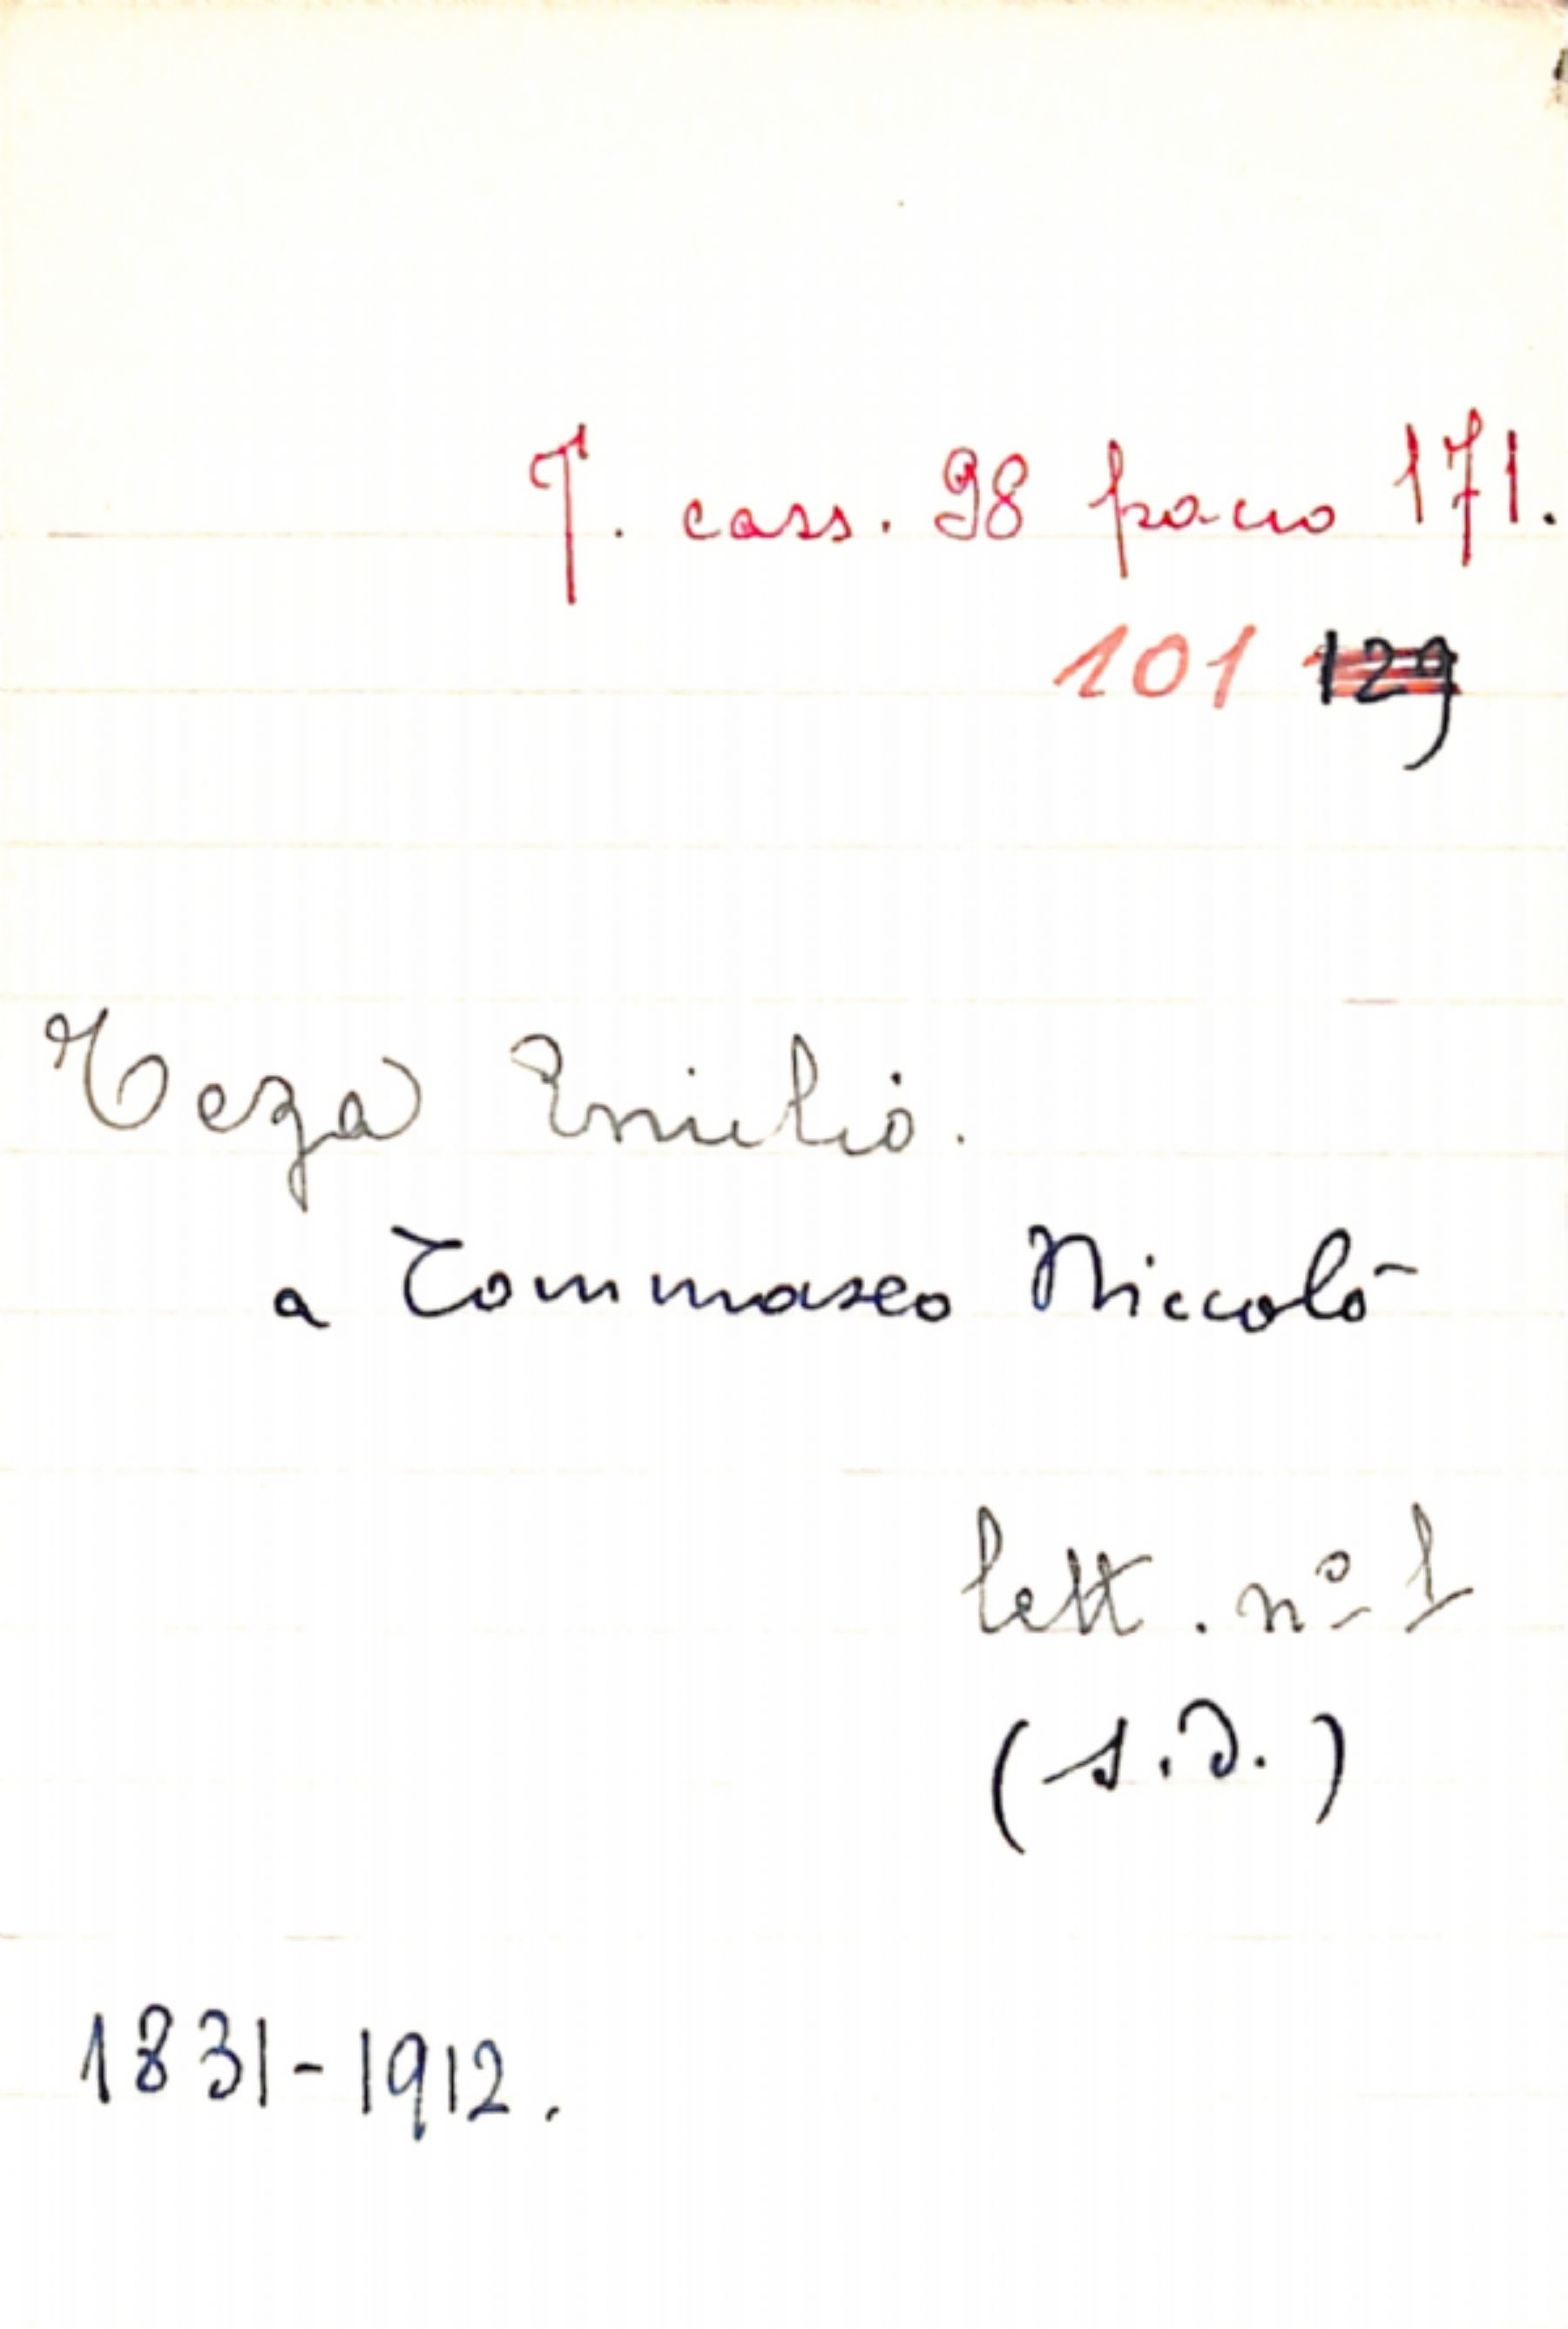 T. cass. 98 pacco 171.
101 129
Teza Emilio.
a Tommaseo Niccolò
lett. nº 1
(s.d.)
1831-1912.